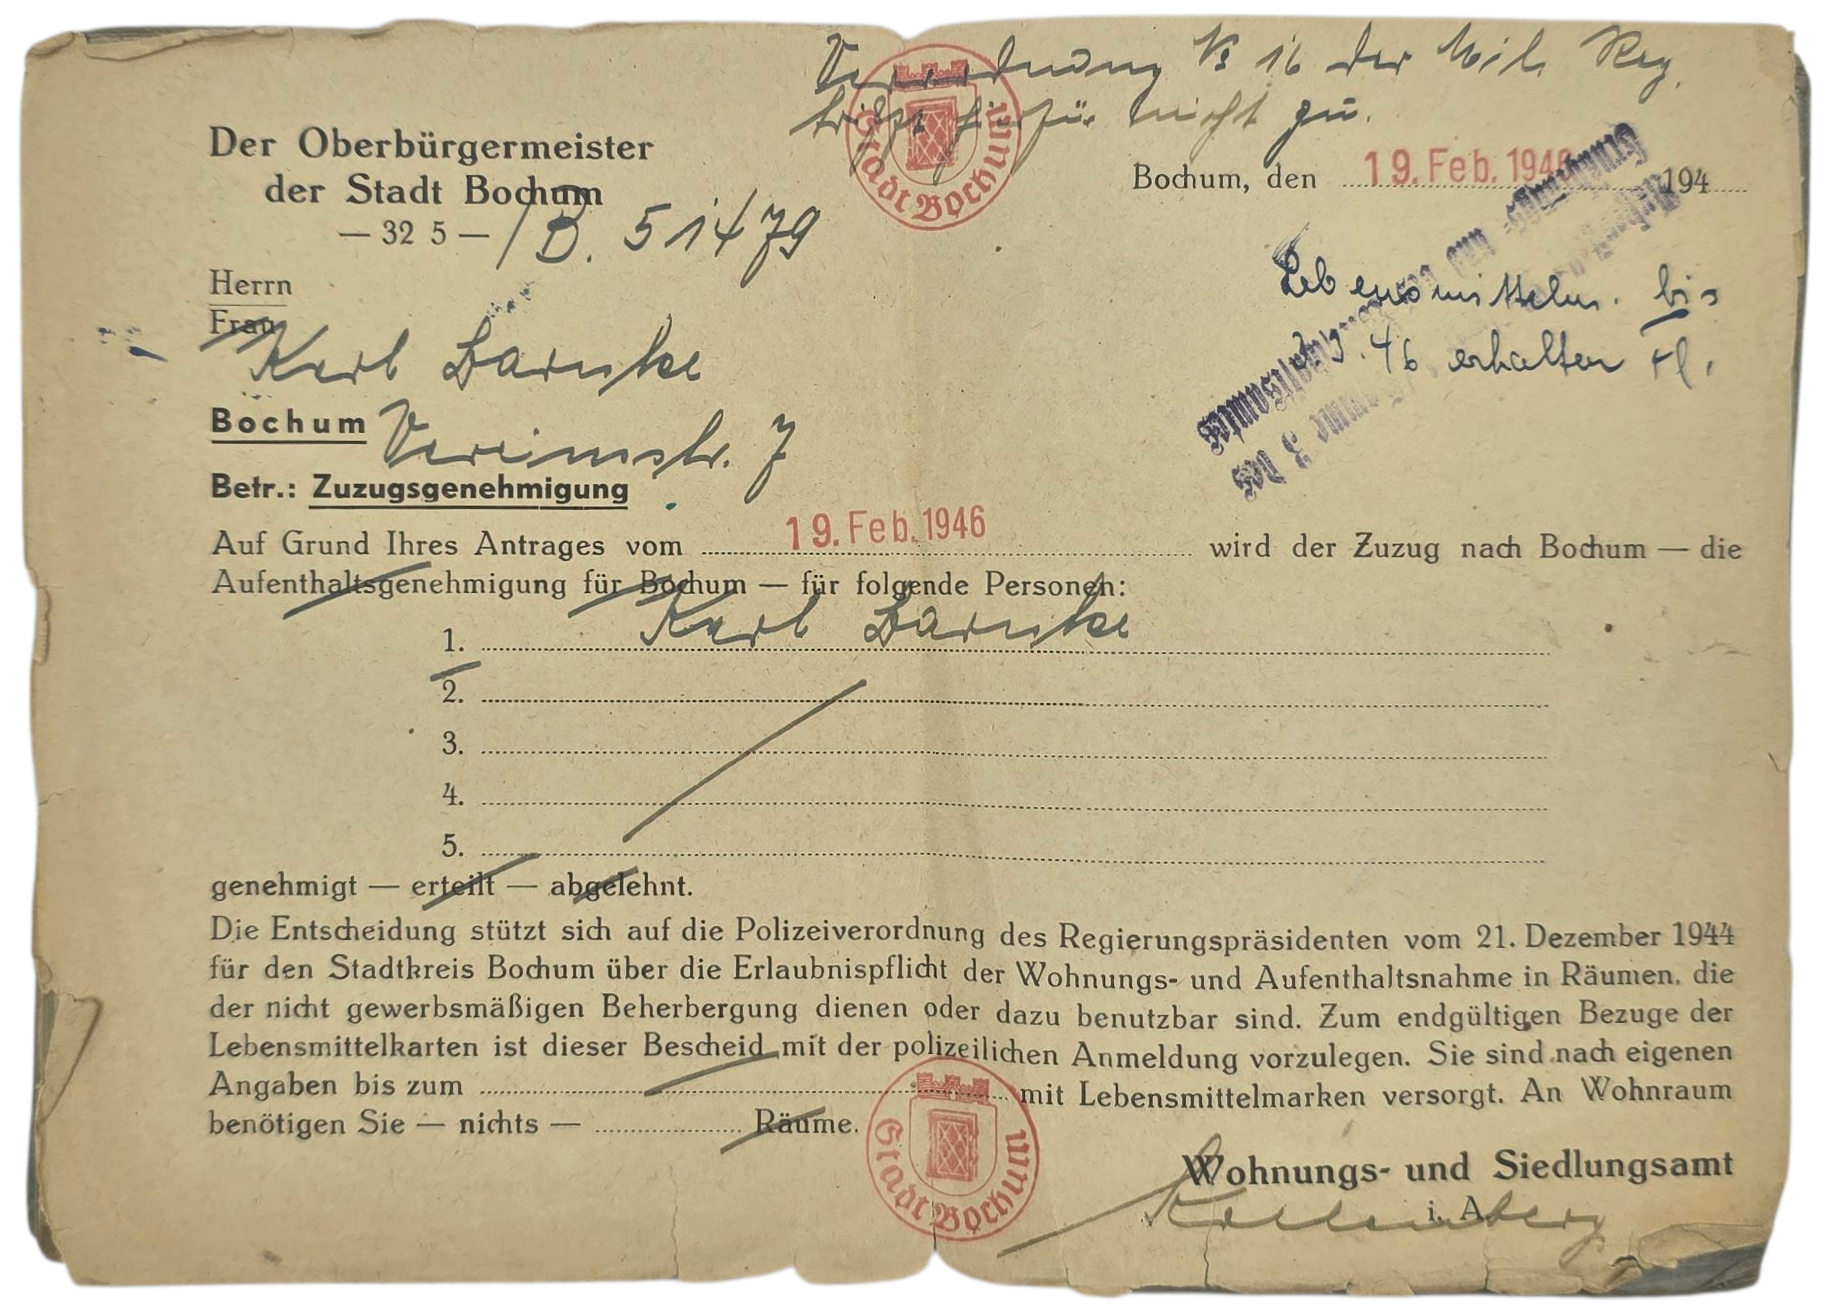 Verordnung № 16 der Mil. Reg.
trifft hierfür nicht zu.
Stadt Bochum
Der Oberbürgermeister
der Stadt Bochum
— 32 5 — / B. 51479
Bochum, den 19. Feb. 1946 194
Herrn
Frau
Karl Barnke
Lebensmittelm. bis
46 erhalten
Bochum Vereinsstr. 7
Betr.: Zuzugsgenehmigung
Auf Grund Ihres Antrages vom 19. Feb. 1946 wird der Zuzug nach Bochum — die
Aufenthaltsgenehmigung für Bochum — für folgende Personen:
1. Karl Barnke
2.
3.
4.
5.
genehmigt — erteilt — abgelehnt.
Die Entscheidung stützt sich auf die Polizeiverordnung des Regierungspräsidenten vom 21. Dezember 1944
für den Stadtkreis Bochum über die Erlaubnispflicht der Wohnungs- und Aufenthaltsnahme in Räumen, die
der nicht gewerbsmäßigen Beherbergung dienen oder dazu benutzbar sind. Zum endgültigen Bezuge der
Lebensmittelkarten ist dieser Bescheid mit der polizeilichen Anmeldung vorzulegen. Sie sind nach eigenen
Angaben bis zum mit Lebensmittelmarken versorgt. An Wohnraum
benötigen Sie — nichts — Räume.
Stadt Bochum
Wohnungs- und Siedlungsamt
i. A.